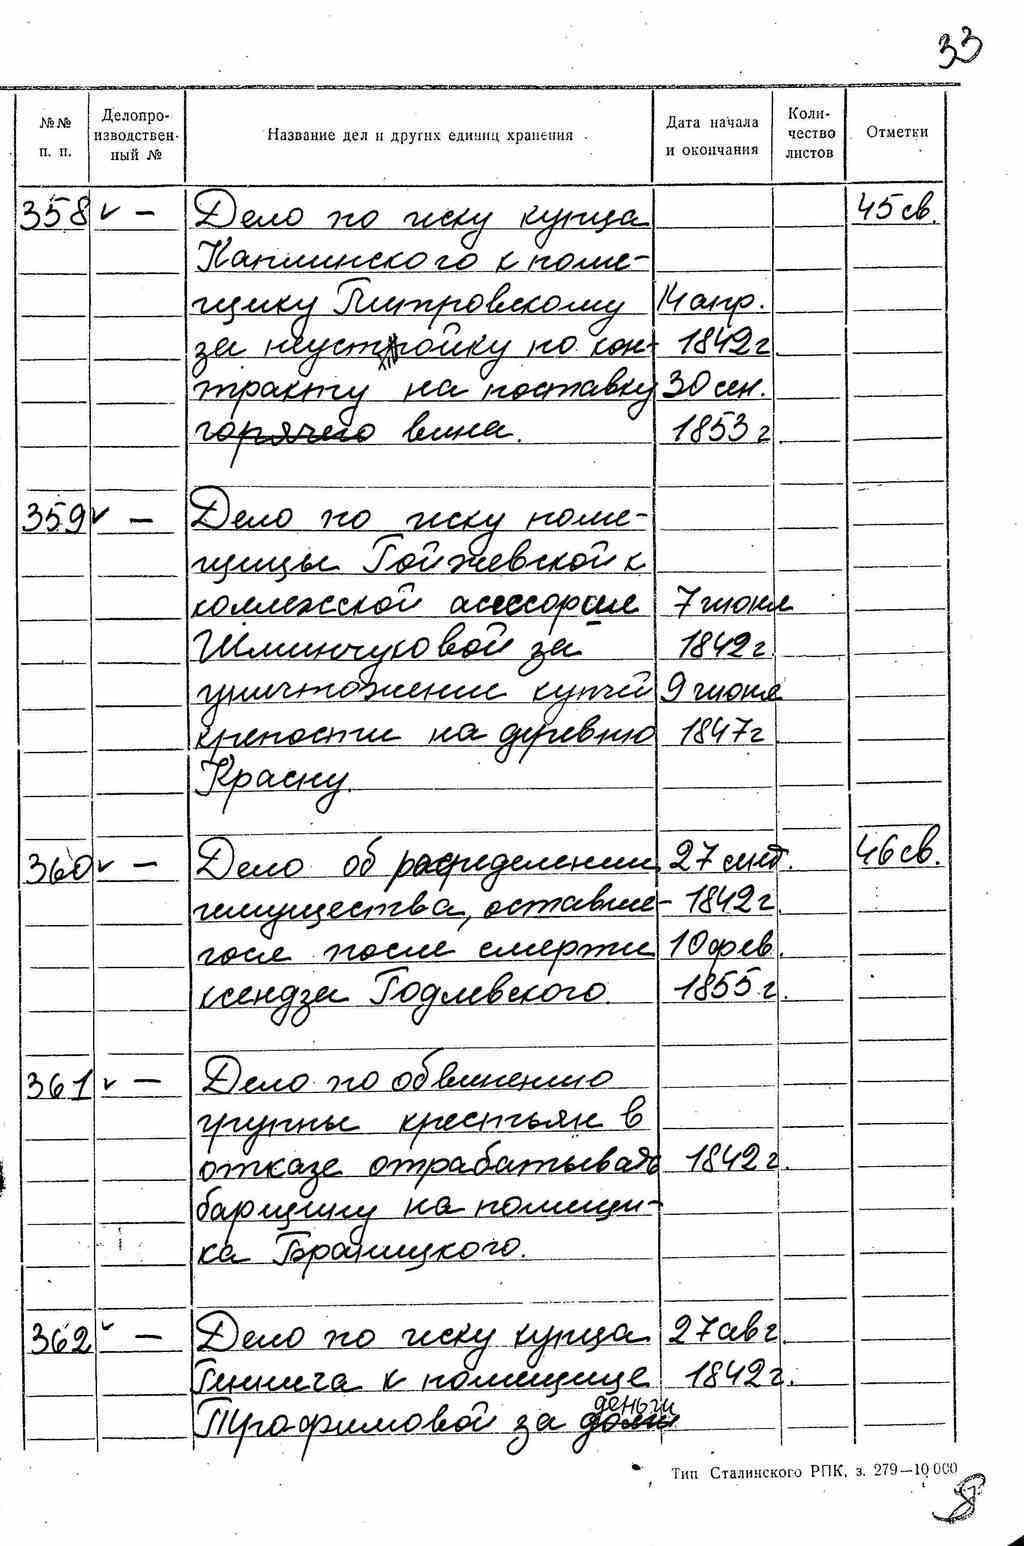 33
№№ п. п. Делопро-изводствен-ный № Название дел и других единиц хранения Дата начала и окончания Коли-чество листов Отметки
358 ✓ — Дело по иску купца 45 св.
Каплинского к поме-
щику Пиотровскому 14 апр.
за неустойку по кон- 1842 г
тракту на поставку 30 сен.
горячего вина. 1853 г
359 ✓ — Дело по иску поме-
щицы Гойжевской к
коллежской асессорше 7 июня
Шлинчуковой за 1842 г.
уничтожение купчей 9 июня
крепости на деревню 1847 г
Красну.
360 ✓ — Дело об распределении 27 сент. 46 св.
имущества, оставше- 1842 г.
гося после смерти 10 фев.
ксендза Годлевского. 1855 г.
361 ✓ — Дело по обвинению
группы крестьян в
отказе отрабатывать 1842 г.
барщину на помещи-
ка Браницкого.
362 ✓ — Дело по иску купца 27 авг.
к помещице 1842 г.
деньги
Трофимовой за
Тип Сталинского РПК, з. 279—10 000